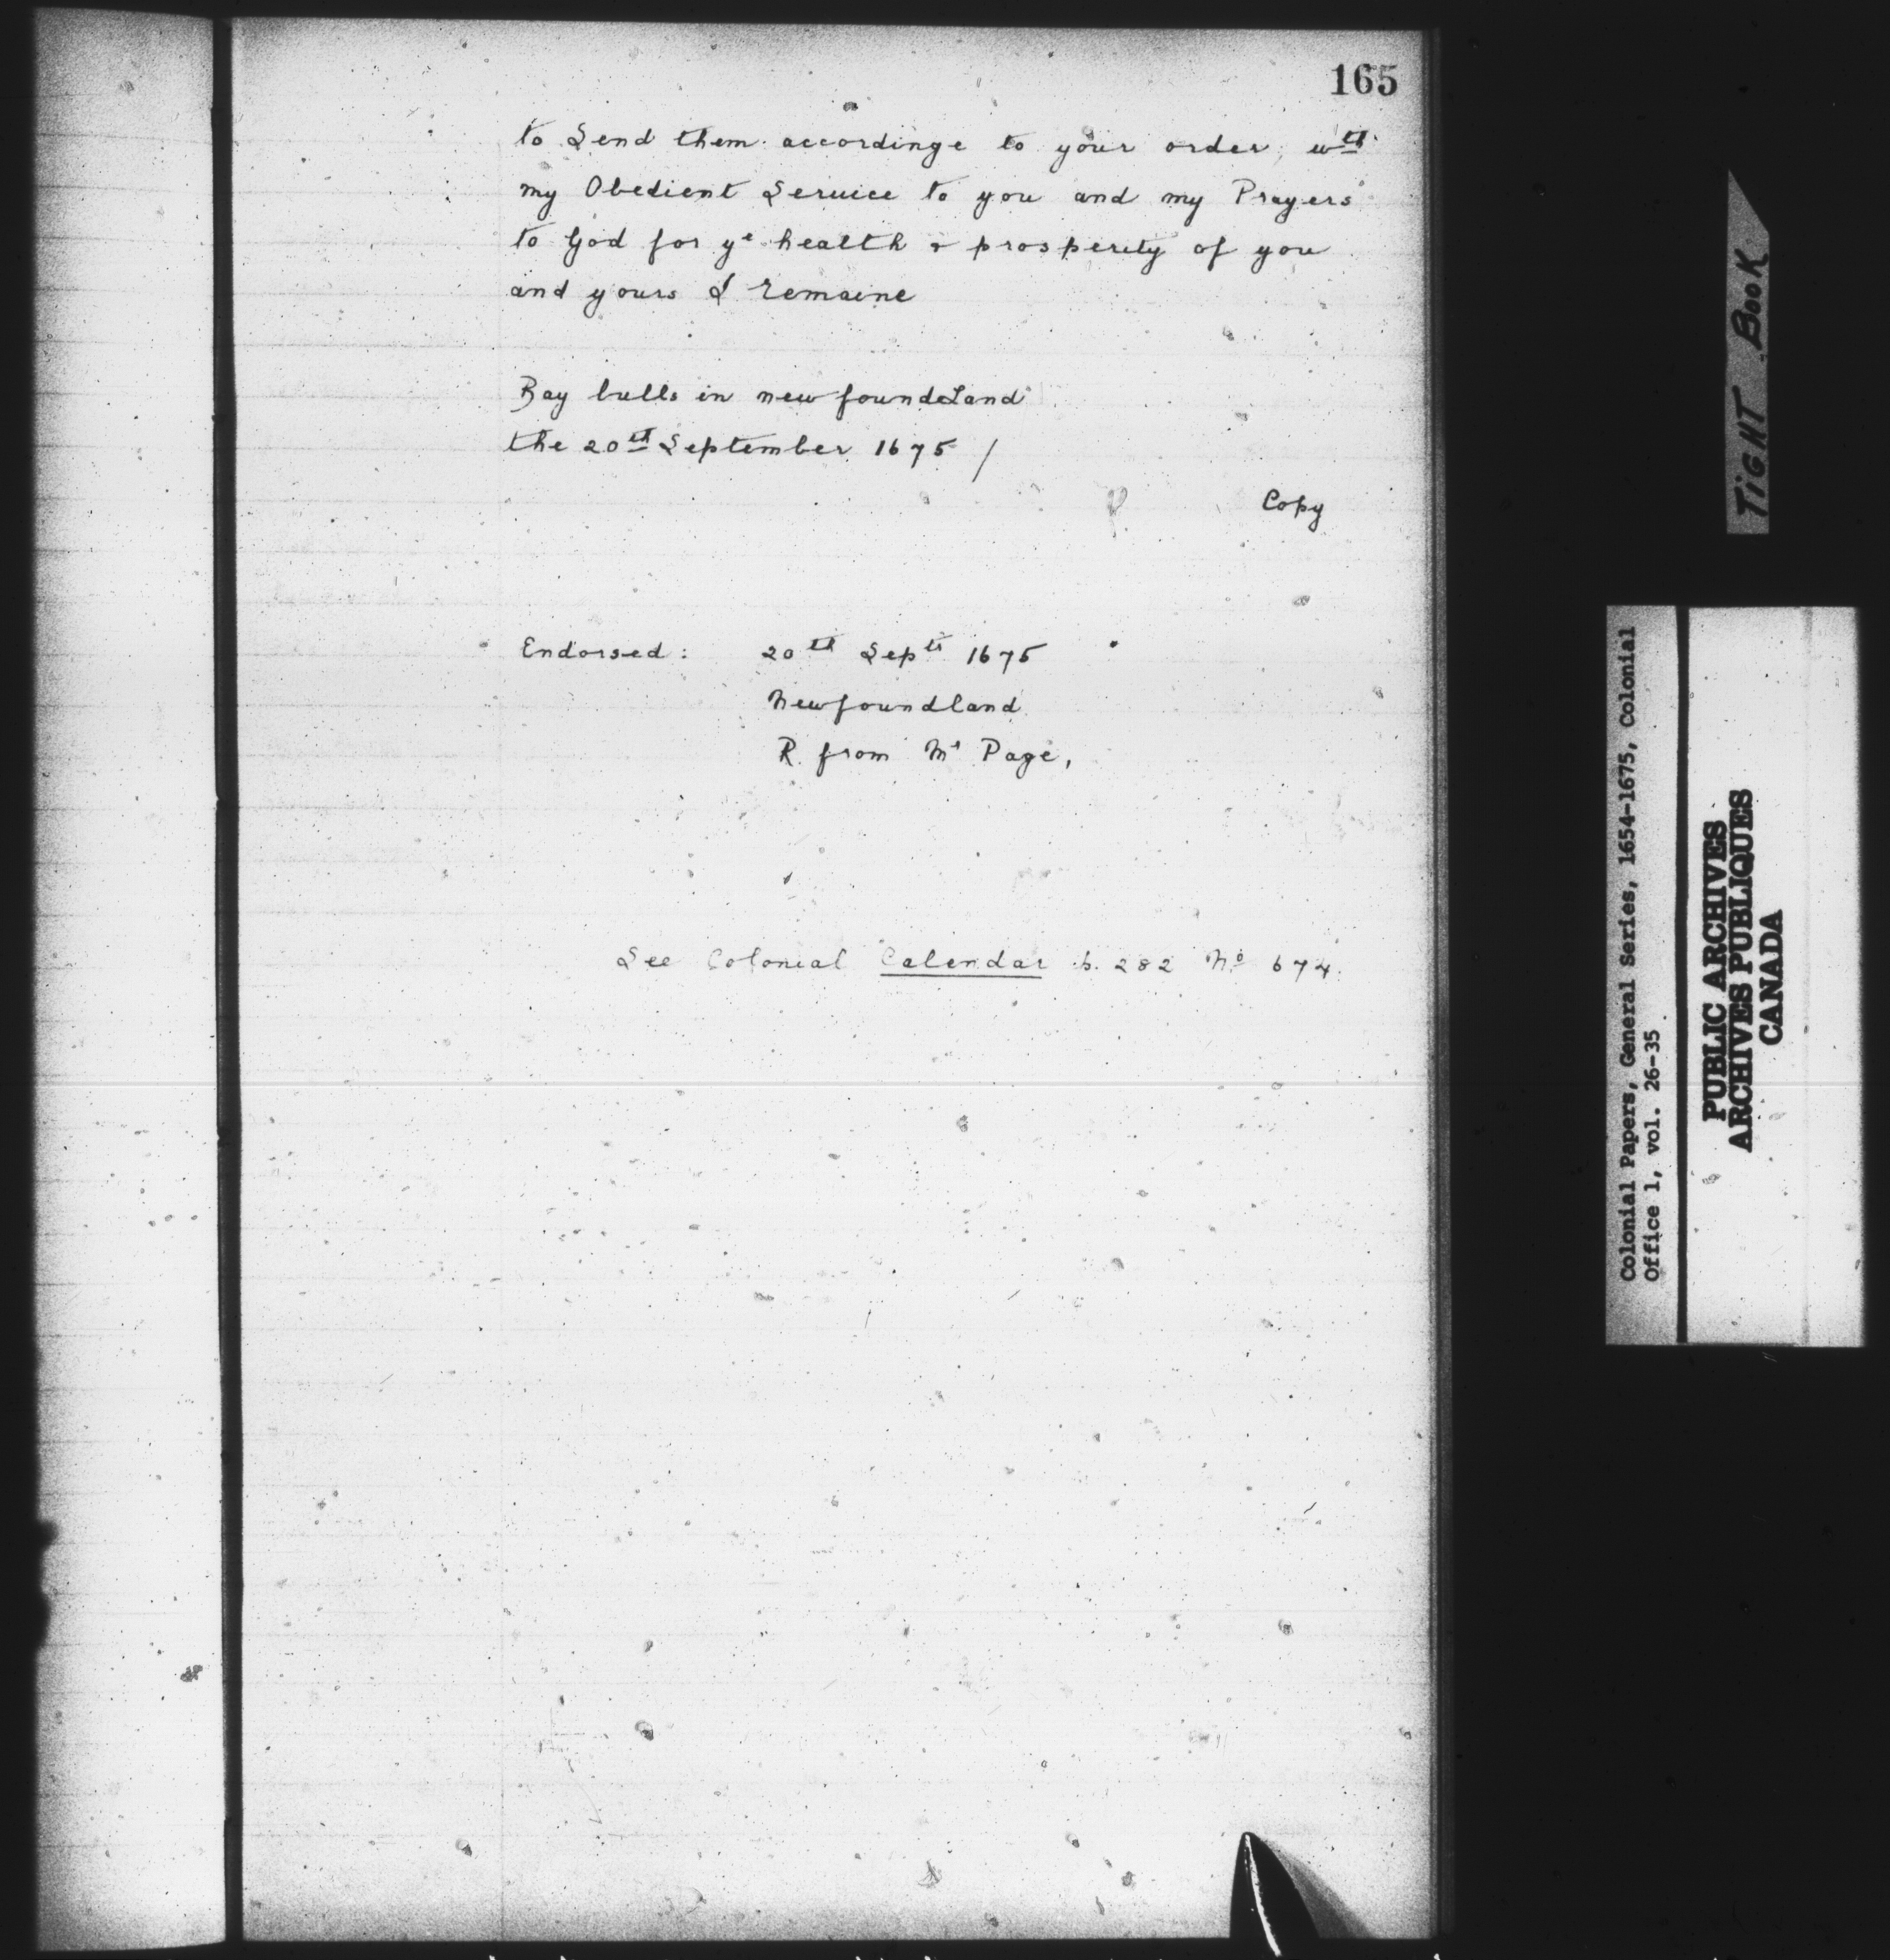 165
to Send them accordinge to your order, wth
my Obedient Seruice to you and my Prayers
to God for ye health & prosperity of you
and yours I remaine
Bay bulls in newfoundeLand
the 20th September 1675 /
Copy
Endorsed: 20th Septr 1675
Newfoundland
R. from Mr Page,
See Colonial Calendar p. 282 No 674.
TiGHT BooK
Colonial Papers, General Series, 1654-1675, Colonial
Office 1, vol. 26-35
PUBLIC ARCHIVES
ARCHIVES PUBLIQUES
CANADA